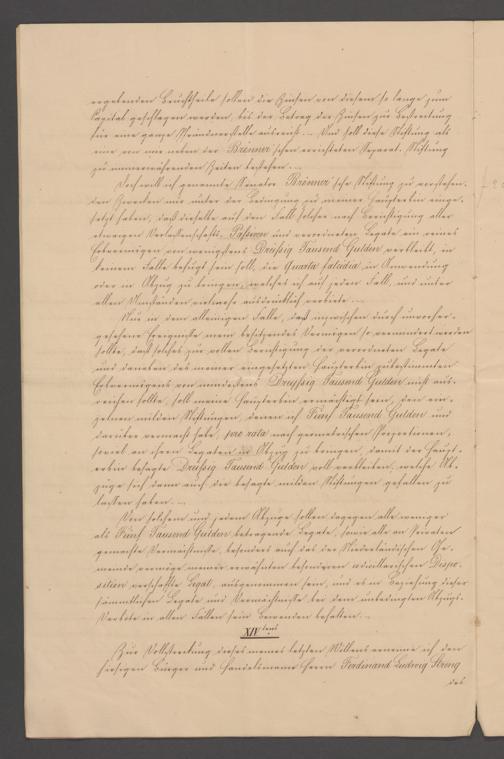 ergebenden Bruchtheile sollen die Zinsen von diesem so lange zum
Capital geschlagen werden, bis der Betrag der Zinsen zur Bestreitung
für eine ganze Pfründnerstelle ausreicht. — Und soll diese Stiftung als
eine von mir neben der Brönner'schen errichteten Separat-Stiftung
zu immerwährenden Zeiten bestehen. —
Doch will ich genannte Senator Brönner'sche Stiftung zu vorstehen-
den Zwecken nur unter der Bedingung zu meiner Haupterbin einge-
setzt haben, daß dieselbe auf den Fall solcher nach Berichtigung aller
etwaigen Verlassenschafts-Passiven und verordneten Legate ein reines
Erbvermögen von wenigstens Dreißig Tausend Gulden verbleibt, in
keinem Falle befugt sein soll, die Quarta falcidia in Anwendung
oder in Abzug zu bringen, welches ich auf jeden Fall und unter
allen Umständen vielmehr ausdrücklich verbiete. —
Nur in dem alleinigen Falle, daß inzwischen durch unvorher-
gesehene Ereignisse mein besitzendes Vermögen so vermindert werden
sollte, daß solches zur vollen Berichtigung der verordneten Legate
und daneben des meiner eingesetzten Haupterbin zubestimmten
Erbvermögens von mindestens Dreyßig Tausend Gulden nicht aus-
reichen sollte, soll meine Haupterbin ermächtigt sein, den ein-
zelnen milden Stiftungen, denen ich Fünf Tausend Gulden und
darüber vermacht habe, pro rata nach geometrischen Proportionen,
soviel an ihren Legaten in Abzug zu bringen, damit der Haupt-
erbin besagte Dreißig Tausend Gulden voll verbleiben, welche Ab-
züge sich dann auch die besagte milden Stiftungen gefallen zu
lassen haben. —
Von solchem und jedem Abzuge sollen dagegen alle weniger
als Fünf Tausend Gulden betragende Legate, sowie alle an Privaten
gemachte Vermächtnisse, besonders auch das der Niederländischen Ge-
meinde vermöge meiner erwähnten besonderen codicillarischen Dispo-
sition verschaffte Legat, ausgenommen sein, und es in Beziehung dieser
sämmtlichen Legate und Vermächtnisse bei dem unbedingten Abzugs-
Verbote in allen Fällen sein Bewenden behalten. —
XIVtens
Zur Vollstreckung dieses meines letzten Willens ernenne ich den
hiesigen Bürger und Handelsmann Herrn Ferdinand Ludwig Streng
des